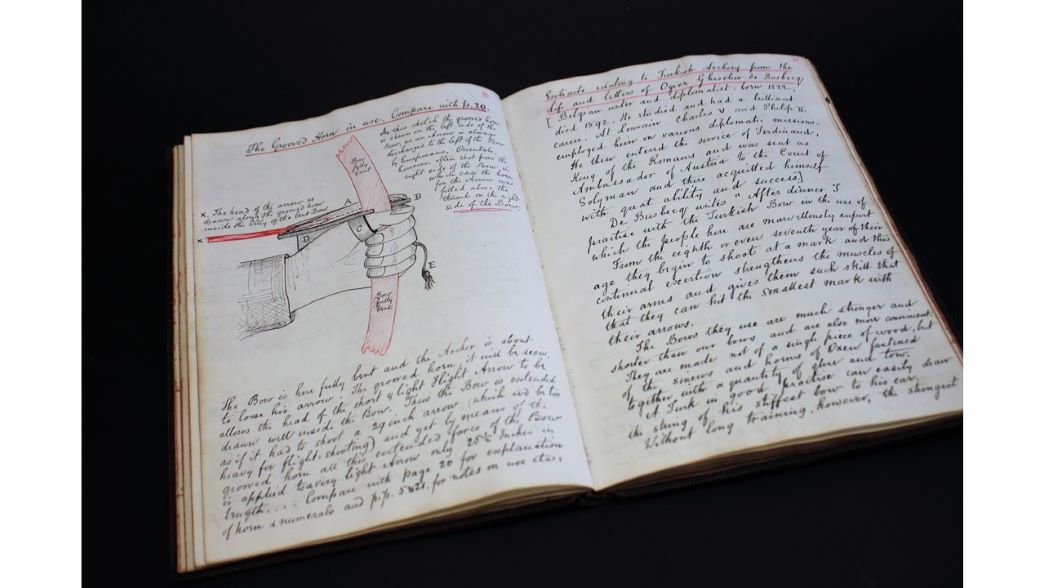 The Grooved Horn in use. Compare with p. 20.
In this sketch the grooved horn
is shewn on the left side of the
Bow, as an Arrow is always
discharged to the left of the Bow
by Europeans. Orientals,
however, often shot from the
right side of the Bow, in
which case the horn
for the Arrow was
fitted above the
thumb on the right
side of the Bow.
Bow
fully
bent
x. The head of the arrow as
drawn along the grooved horn
inside the belly of the bent Bow.
x
A
B
C
D
E
Bow
fully
bent.
The Bow is here fully bent and the Archer is about
to loose his arrow. The grooved horn, it will be seen,
allows the head of the short & light Flight Arrow to be
drawn well inside the Bow. Thus the Bow is extended
as if it had to shoot a 29 inch arrow (which wd be too
heavy for flight shooting) and yet by means of the
grooved horn all this extended force of the Bow
is applied to a very light Arrow only 25½ Inches in
length... Compare with page 20 for explanation
of horn & numerals and p.p. 5 & 21. for notes on use etc.
Extracts relating to Turkish Archery from the
life and letters of Ogier Ghiselin de Busbecq
[Belgian writer and diplomatist: born 1522,
died 1592. He studied and had a brilliant
career. At Louvain. Charles V and Philip II
employed him on various diplomatic missions.
He then entered the service of Ferdinand,
King of the Romans and was sent as
Ambassador of Austria to the Court of
Solyman and there acquitted himself
with great ability and success]
De Busbecq writes "After dinner I
practise with the Turkish Bow in the use of
which the people here are marvellously expert
From the eighth or even seventh year of their
age they begin to shoot at a mark and this
continual exertion strengthens the muscles of
their arms and gives them such skill that
that they can hit the smallest mark with
their arrows.
The Bows they use are much stronger and
shorter than our bows and are also more convenient.
They are made not of a single piece of wood, but
of the sinews and horns of Oxen fastened
together with a quantity of glue and tow.
A Turk in good practise can easily draw
the string of his stiffest bow to his ear.
Without long training, however, the strongest